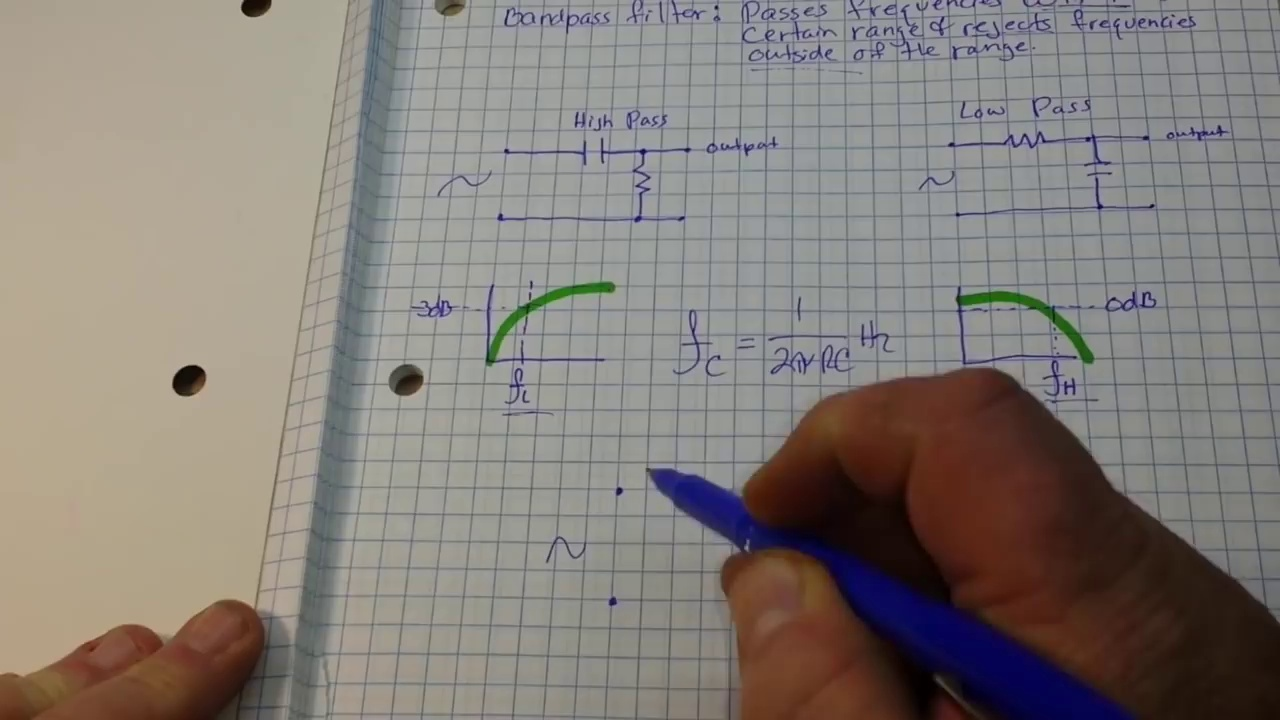 Bandpass filter: Passes frequencies
Certain range & rejects frequencies
outside of the range.
High Pass
Low Pass
output
output
-3dB
0dB
fL
fC = 1/2πRC Hz
fH